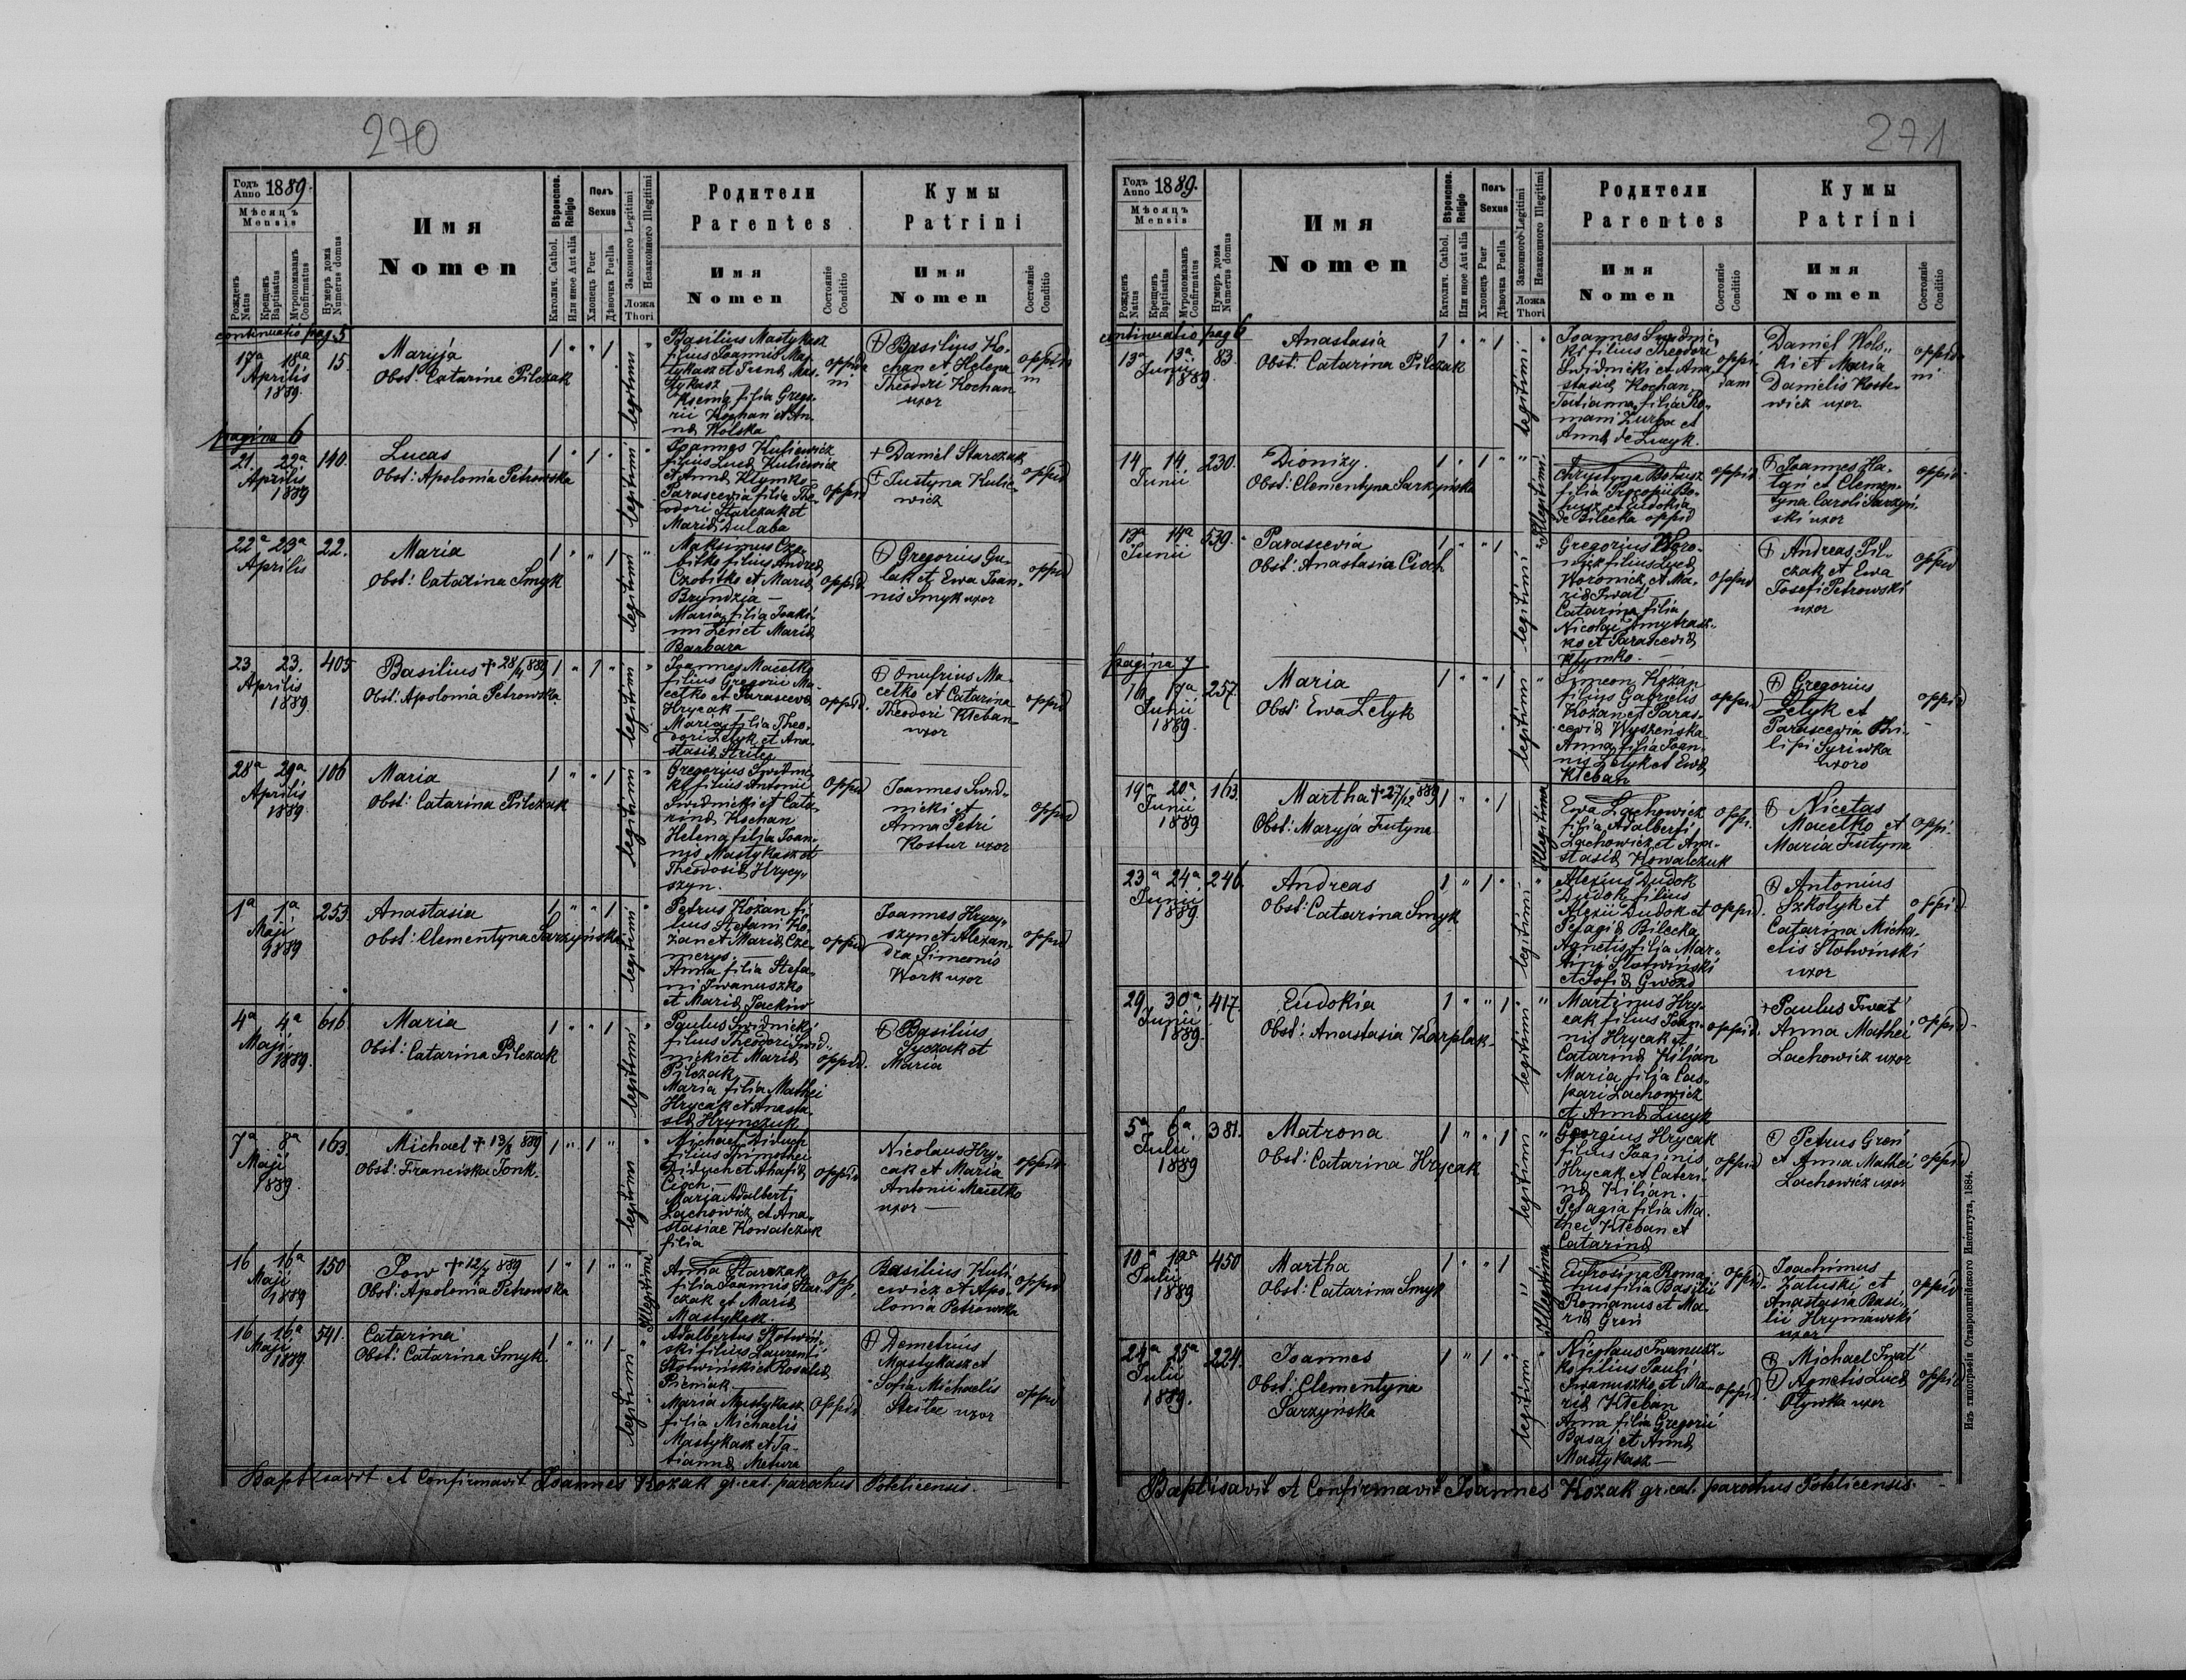 270
Годъ Anno 1889.
Мѣсяцъ
Mensis
Рожденъ Natus
Крещенъ Baptisatus
Мѵропомазанъ Confirmatus
Нумеръ дома Numerus domus
Имя
Nomen
Вѣроисповѣд. Religio
Католич. Cathol.
Или иное Aut alia
Полъ Sexus
Хлопецъ Puer
Дѣвочка Puella
Законного Legitimi
Незаконного Illegitimi
Ложа Thori
Родители
Parentes
Имя
Nomen
Состояніе Conditio
Кумы
Patrini
Имя
Nomen
Состояніе Conditio
continuatio pag. 5
17a 18a
Aprilis
1889.
15.
Maryja
Obst: Catarina Pilczak
1 " " 1
legitimi
Basilius Mastykasz
filius Joannis Mas-
tykasz et Mas-
tykasz
filia Grego-
rii Kochan et An-
na Wolska
oppida
ni
Basilius Ko-
chan et Helena
Theodori Kochan
uxor
oppida
ni
pagina 6
21. 22a
Aprilis
1889
140.
Lucas
Obst: Apolonia Petrowska
1 " 1 "
legitimi
Joannes Kuliewicz
filius Luca Kuliewicz
et Anna Klymko
Parascevia filia The-
odori Starczak et
Maria Dulaba
oppid
+ Daniel Starczak
Justyna Kulie-
wicz
oppid
22a 23a
Aprilis
22.
Maria
Obst: Catarina Smyk
1 " " 1
legitimi
Maksimus Czo-
bitko filius Andrea
Czobitko et Maria
Bryndzia —
Maria filia Joaki-
mi Zen et Maria
Barbara
oppid
Gregorius Gu-
lak et Ewa Joan-
nis Smyk uxor
oppid
23. 23.
Aprilis
1889.
405
Basilius + 28/4 889
Obst: Apolonia Petrowska.
1 " 1 "
legitimi
Joannes Macetko
filius Gregorii Ma-
cetko et Parasceva
Hrycak —
Maria filia Theo-
dori Letyk et Ana-
stasia
oppid.
Onufrius Ma-
cetko et Catarina
Theodori Kleban
uxor
oppid
28a 29a
Aprilis
1889.
106
Maria
Obst: Catarina Pilczak
1 " " 1
legitimi
Gregorius Swidnic-
ki filius Antonii
Swidnicki et Cata-
rina Kochan
Helena filia Joan-
nis Mastykasz et
Theodosia Hrycy-
szyn.
oppid
Joannes Swid-
nicki et
Anna Petri
Kostur uxor
oppid
1a 1a
Maji
1889
253.
Anastasia
Obst: Clementyna Sarzyńska
1 " " 1
legitimi
Petrus Kożan fi-
lius Stefani Ko-
żan et Maria Cze-
merys.
Anna filia Stefa-
ni Iwanuszko
et Maria Jackiw
oppid
Joannes Hrycy-
szyn et Alexan-
dra Simeonis
Work uxor
oppid
4a 4a
Maji
1889.
616
Maria
Obst: Catarina Pilczak
1 " " 1
legitimi
Paulus Swidnicki
filius Theodori Swid-
nicki et Maria
Pilczak —
Maria filia Mathei
Hrycak et Anasta-
sia Hrynczuk
oppid.
Basilius
Syczak et
Maria
7a 8a
Maji
1889.
163
Michael + 13/8 889
Obst: Franciska Jonk.
1 " 1 "
legitimi
Michael Diduch
filius Timothei
Diduch et Ahafia
Cioch —
Maria Adalberti
Lachowicz et Ana-
stasiae Kowalczuk
filia
oppid
Nicolaus Hry-
cak et Maria
Antonii Macetko
uxor —
oppid
16 16a
Maji
1889
150
Jow + 12/7 889
Obst: Apolonia Petrowska
1 " 1 " "
illegitimi
Anna Starczak
filia Joannis Star-
czak et Maria
Mastykasz.
opp.
Basilius Kuli-
ewicz et Apo-
lonia Petrowska
oppid
16 16a
Maji
1889.
541.
Catarina
Obst: Catarina Smyk
1 " " 1
legitimi
Adalbertus Słotwiń-
ski filius Laurenti
Słotwiński et Rosalia
Pieniak
Maria Mastykasz
filia Michaelis
Mastykasz et Ta-
tianna Metura
oppid
Demetrius
Mastykasz et
Sofia Michaelis
Strilec uxor
oppid
Baptisavit et Confirmavit Joannes Kozak gr. cat. parochus Potelicensis.
271
Годъ Anno 1889.
Мѣсяцъ
Mensis
Рожденъ Natus
Крещенъ Baptisatus
Мѵропомазанъ Confirmatus
Нумеръ дома Numerus domus
Имя
Nomen
Вѣроисповѣд. Religio
Католич. Cathol.
Или иное Aut alia
Полъ Sexus
Хлопецъ Puer
Дѣвочка Puella
Законного Legitimi
Незаконного Illegitimi
Ложа Thori
Родители
Parentes
Имя
Nomen
Состояніе Conditio
Кумы
Patrini
Имя
Nomen
Состояніе Conditio
continuatio pag 6
13a 13a
Junii
1889.
83.
Anastasia
Obst: Catarina Pilczak
1 " " 1
legitimi
Joannes Swidnic-
ki filius Theodori
Swidnicki et Ana-
stasia Kochan
Tatianna filia Ro-
mani Zurba et
Anna de Lucyk.
oppi-
dani
Daniel Wols-
ki et Maria
Danielis Koste-
wicz uxor
oppida-
ni
14 14.
Junii
230.
Dionizy.
Obst: Clementyna Sarzyńska
1 " 1 " "
Illegitimi.
Chrystyna Bohusz
filia Procopii Bo-
husz et Eudokia
de Bilecka oppid
oppid
Joannes Ha-
lan et Clemen-
tyna Caroli Sarzyń-
ski uxor
oppid
13a 14a
Junii
539.
Parascevia
Obst: Anastasia Cioch
1 " " 1
legitimi
Gregorius Woro-
filius Luca
Woronicz et Ma-
ria Iwat —
Catarina filia
Nicolai Dmytrasz-
ko et Parascevia
Klymko. —
oppid
Andreas Pil-
czak et Ewa
Josefi Petrowski
uxor
oppid
pagina 7
16 17a
Junii
1889.
257.
Maria
Obst: Ewa Letyk
1 " " 1
legitimi
Simeon Kożan
filius Gabrielis
Kożan et Paras-
cevia Wyszeńska
Anna filia Joan-
nis Letyk et Ewa
Kleban
oppid
Gregorius
Letyk et
Parascevia Phi-
lipi Syriwka
uxoro
oppid
19a 20a
Junii
1889
163.
Martha + 27/12 889
Obst: Maryja Futyna
1 " " 1
Illegitima
Ewa Lachowicz
filia Adalberti
Lachowicz et Ana-
stasia Kowalczuk
oppi.
Nicetas
Macetko et
Maria Futyna
oppi.
23a 24a
Junii
1889.
246.
Andreas
Obst: Catarina Smyk
1 " 1 "
legitimi
Alexius Dudok
Dudok filius
Alexii Dudok et
Pelagia Bilecka
Agnetis filia Mar-
tini Słotwiński
et Sofia Gwozd
oppid.
Antonius
Szkolyk et
Catarina Micha-
elis Słotwiński
uxor
oppid
29. 30a
Junii
1889.
417.
Eudokia
Obst: Anastasia Karplak
1 " " 1 "
legitimi
Martinus Hry-
cak filius Joan-
nis Hrycak et
Catarina Kilian
Maria filia Cas-
pari Lachowicz
et Anna Lucyk
oppid.
+ Paulus Iwat
Anna Mathei
Lachowicz uxor
oppid
5a 6a
Julii
1889
381.
Matrona
Obst: Catarina Hrycak
1 " " 1 "
legitimi
Georgius Hrycak
filius Joannis
Hrycak et Cateri-
na Kilian. —
Pelagia filia Ma-
thei Kleban et
Catarina
oppid
Petrus Greń
et Anna Mathei
Lachowicz uxor
oppid
10a
Julii
1889
450
Martha
Obst: Catarina Smyk
1 " " 1
Illegitima
Eufrosina Roma-
nus filia Basilii
Romanus et Ma-
ria Greń
oppid.
Joachimus
Załuski et
Anastasia Basi-
lii Hrymawski
uxor
oppid
24a 25a
Julii
1889.
224.
Joannes
Obst: Clementyna
Sarzyńska
1 " 1 "
legitimi
Nicolaus Iwanusz-
ko filius Pauli
Iwanuszko et Ma-
ria Kleban
Anna filia Gregorii
Basaj et Anna
Mastykasz —
oppid.
Michael Iwat
Agnetis Luca
Otywka uxor
oppid
Baptisavit et Confirmavit Joannes Kozak gr. cat. parochus Potelicensis.
Изъ типографіи Ставропигійского Института, 1884.